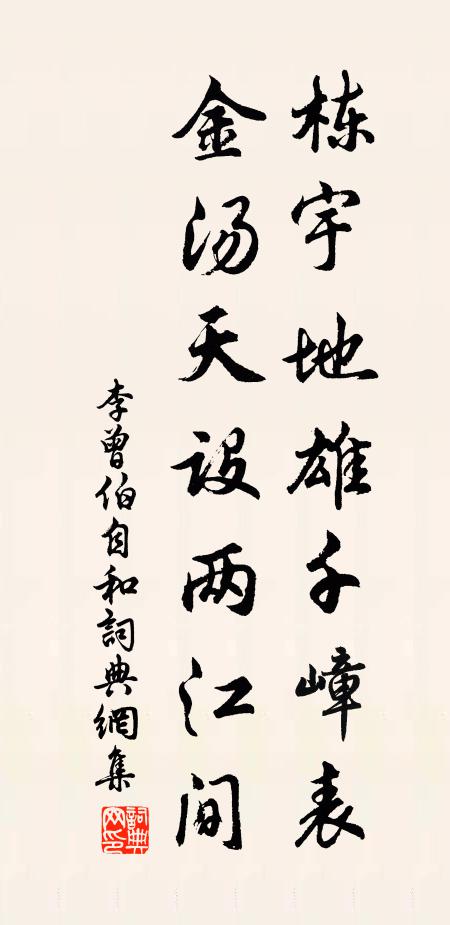 栋宇地雄千嶂表
金汤天设两江间
李曾伯自和詞典網集
詞典網印